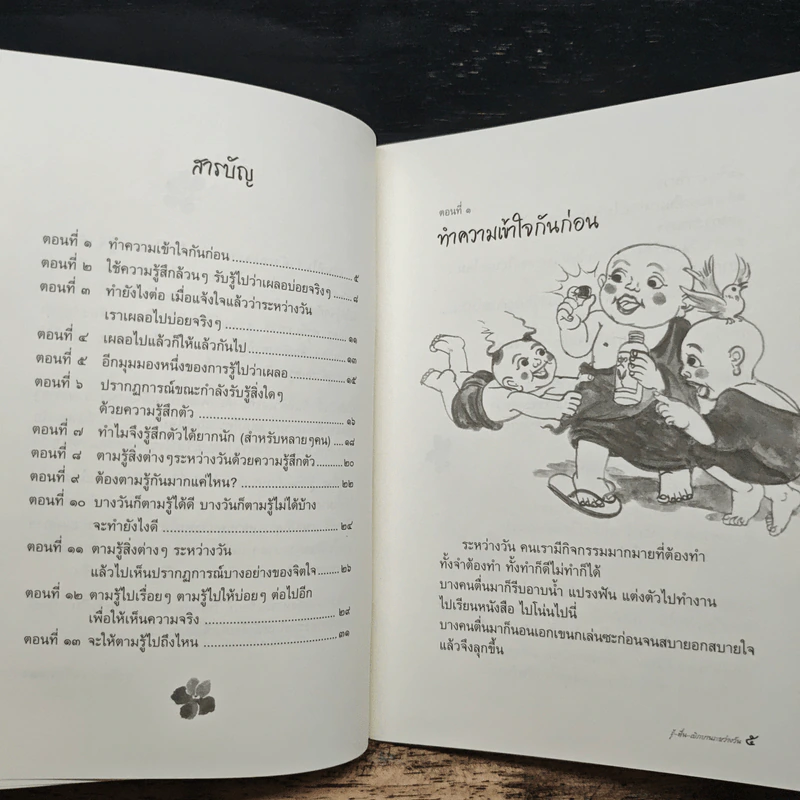 สารบัญ
ตอนที่ ๑ ทำความเข้าใจกันก่อน ๕
ตอนที่ ๒ ใช้ความรู้สึกล้วนๆ รับรู้ไปว่าเผลอบ่อยจริงๆ ๘
ตอนที่ ๓ ทำยังไงต่อ เมื่อแจ้งใจแล้วว่าระหว่างวัน
เราเผลอไปบ่อยจริงๆ ๑๑
ตอนที่ ๔ เผลอไปแล้วก็ให้แล้วกันไป ๑๓
ตอนที่ ๕ อีกมุมมองหนึ่งของการรู้ไปว่าเผลอ ๑๕
ตอนที่ ๖ ปรากฏการณ์ขณะกำลังรับรู้สิ่งใดๆ
ด้วยความรู้สึกตัว ๑๖
ตอนที่ ๗ ทำไมจึงรู้สึกตัวได้ยากนัก (สำหรับหลายๆคน) ๑๘
ตอนที่ ๘ ตามรู้สิ่งต่างๆระหว่างวันด้วยความรู้สึกตัว ๒๐
ตอนที่ ๙ ต้องตามรู้กันมากแค่ไหน? ๒๒
ตอนที่ ๑๐ บางวันก็ตามรู้ได้ดี บางวันก็ตามรู้ไม่ได้บ้าง
จะทำยังไงดี ๒๔
ตอนที่ ๑๑ ตามรู้สิ่งต่างๆ ระหว่างวัน
แล้วไปเห็นปรากฏการณ์บางอย่างของจิตใจ ๒๖
ตอนที่ ๑๒ ตามรู้ไปเรื่อยๆ ตามรู้ไปให้บ่อยๆ ต่อไปอีก
เพื่อให้เห็นความจริง ๒๙
ตอนที่ ๑๓ จะให้ตามรู้ไปถึงไหน ๓๑
ตอนที่ ๑
ทำความเข้าใจกันก่อน
ระหว่างวัน คนเรามีกิจกรรมมากมายที่ต้องทำ
ทั้งจำต้องทำ ทั้งทำก็ดีไม่ทำก็ได้
บางคนตื่นมาก็รีบอาบน้ำ แปรงฟัน แต่งตัวไปทำงาน
ไปเรียนหนังสือ ไปโน่นไปนี่
บางคนตื่นมาก็นอนเอกเขนกเล่นซะก่อนจนสบายอกสบายใจ
แล้วจึงลุกขึ้น
๕